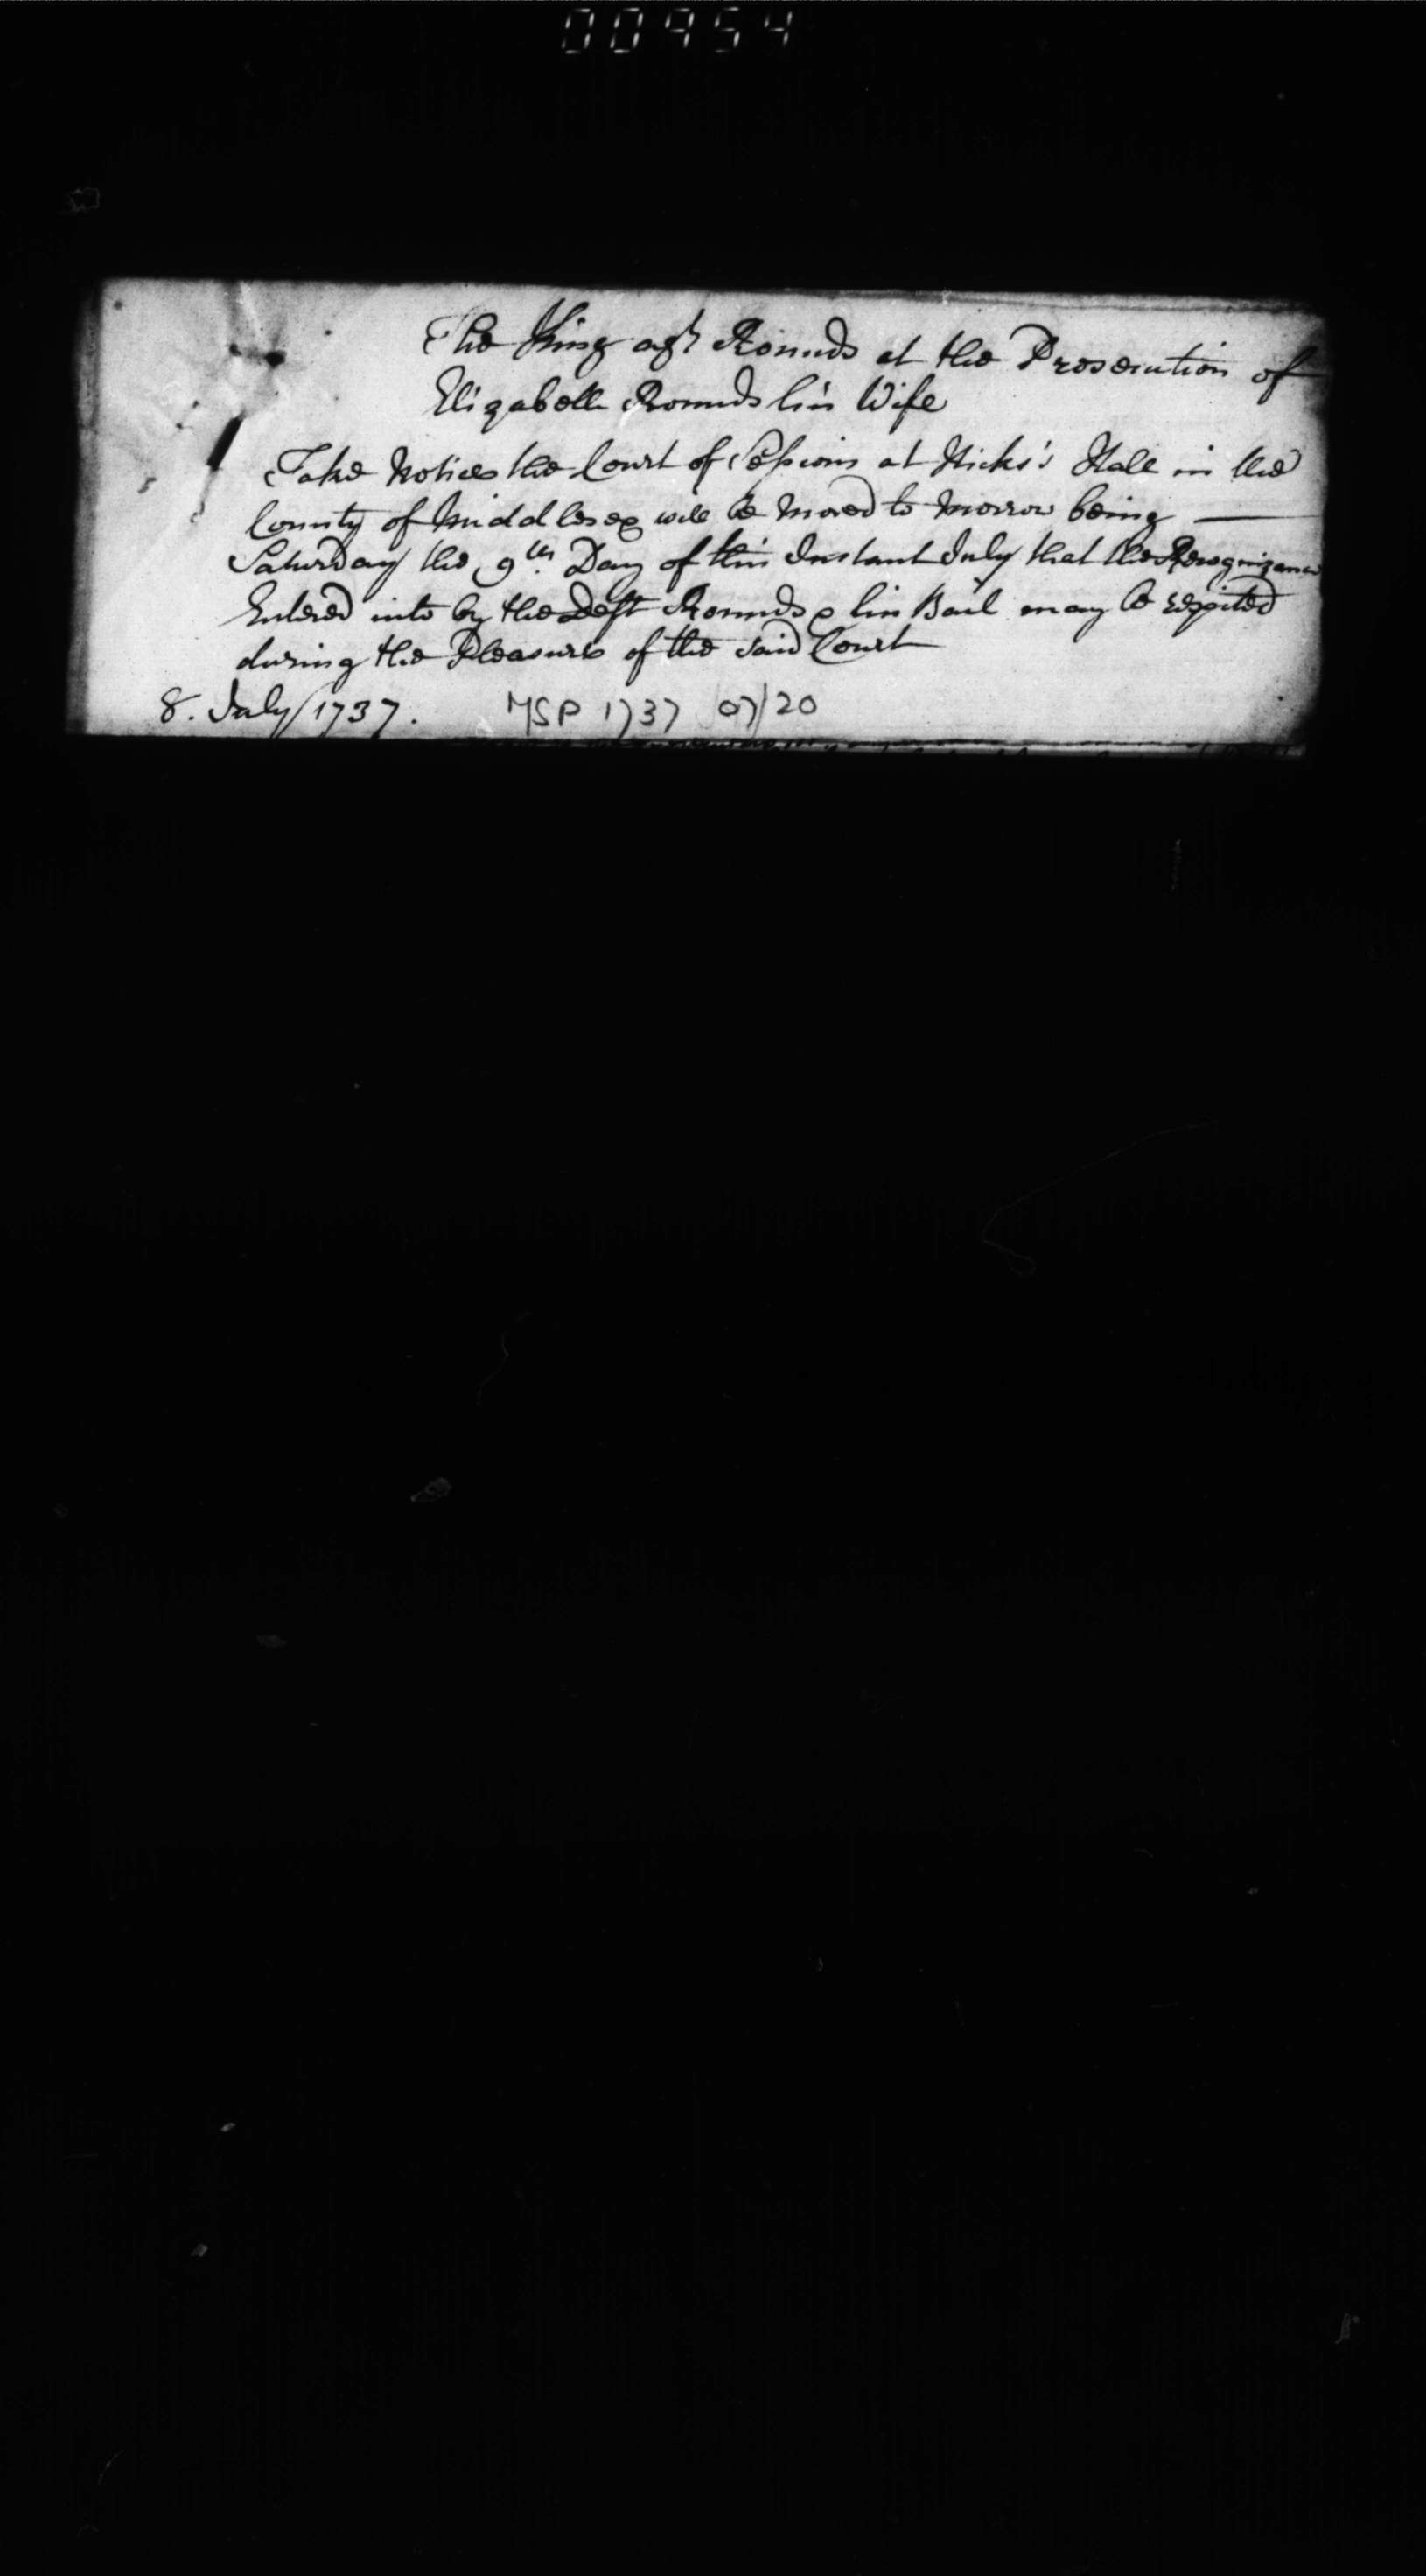 00954
The King agt Rounds at the Prosecution of
Elizabeth Rounds his Wife
Take Notice the Court of Sessions at Hicks's Hall in the
County of Middlesex will be Moved to Morrow being
Saturday the 9th. Day of this Instant July that the Recognizance
Entered into by the Deft Rounds & his Bail may be respited
during the Pleasure of the said Court
8. July 1737. MSP 1737 07/20